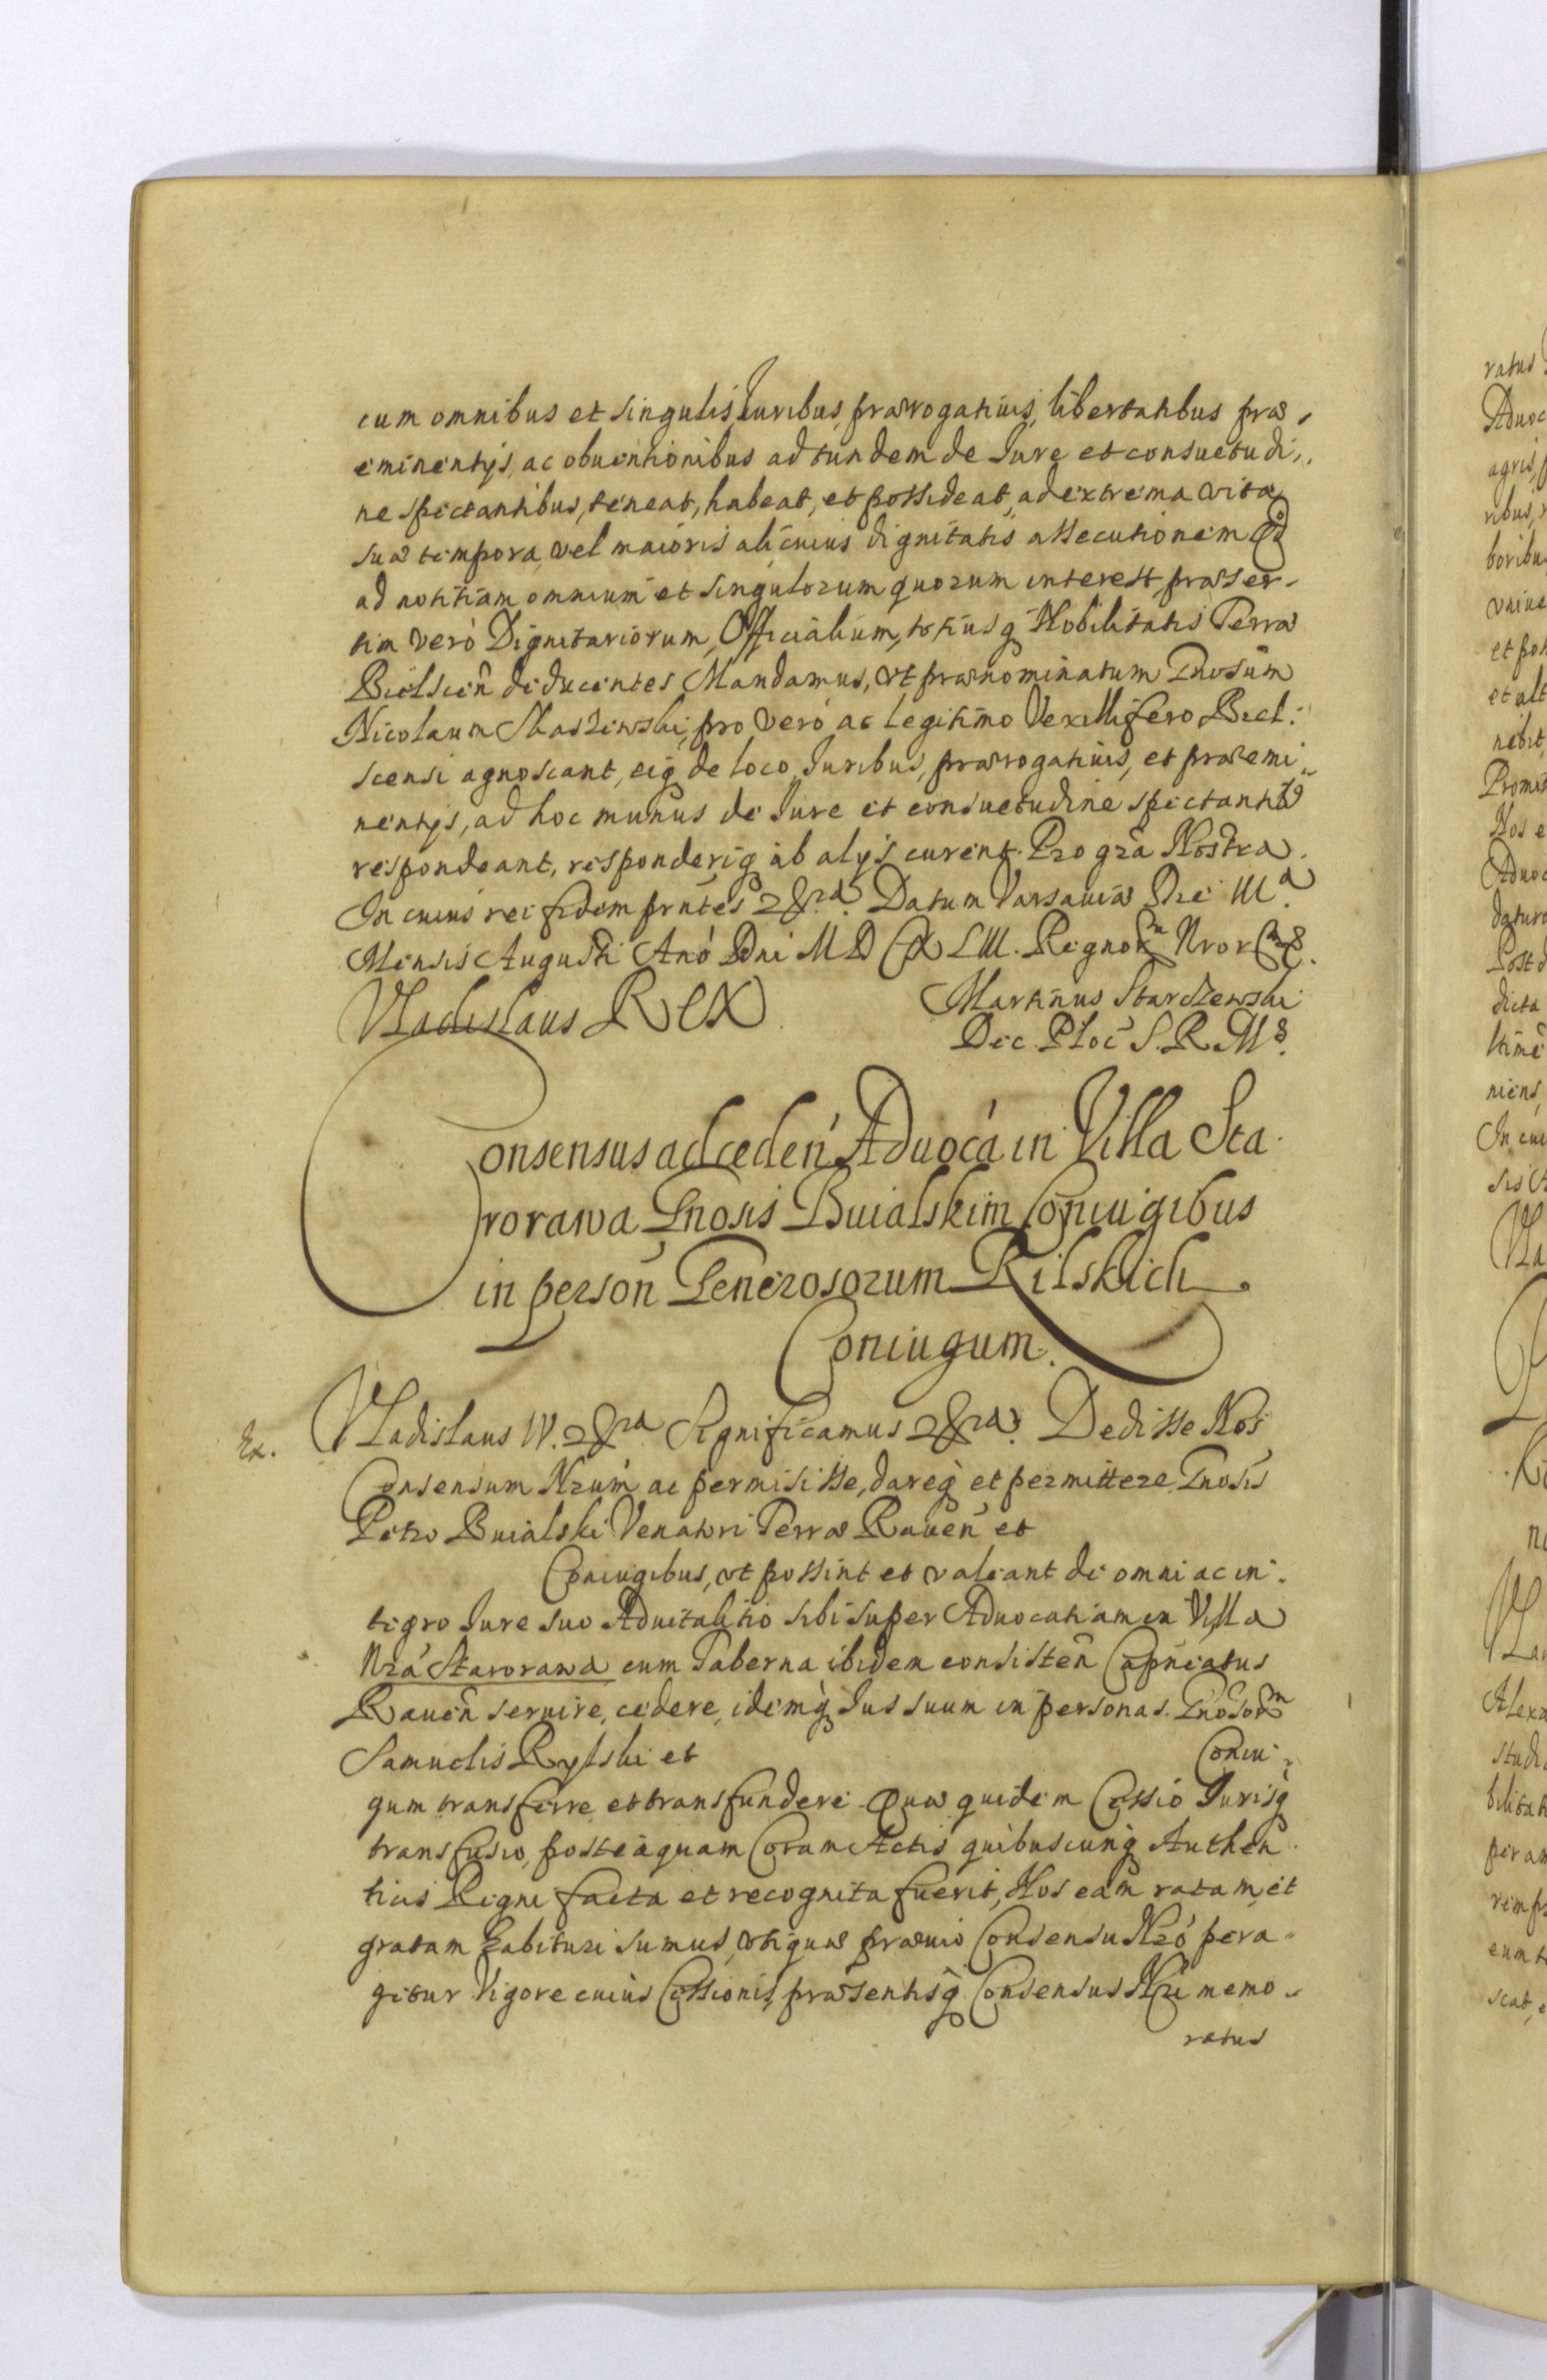 cum omnibus et singulis Iuribus, prærogatiuis, libertatibus præ,
eminentijs, ac obuentionibus ad eundem de Iure et consuetudi,,
ne spectantibus, teneat, habeat, et possideat, ad extrema vitæ
suæ tempora, vel maioris alicuius dignitatis assecutionem Qd
ad notitiam omnium et singulorum quorum interest, præser,
tim verò Dignitariorum, Officialium, totiusq Nobilitatis Terræ
Bielscen̄ deducentes Mandamus, vt prænominatum Gnosūm
Nicolaum Skaszewski, pro verò ac legitimo Vexillifero Biel:
scensi agnoscant, eiq de loco, Iuribus, prærogatiuis, et præemi,,
nentijs, ad hoc munus de Iure et consuetudine spectantib9
respondeant, responderiq ab alijs curent. Pro gr̄a Nostra.
In cuius rei fidem prn̄tes &ra. Datum Varsauiæ Die IIIa.
Mensis Augusti Anó Dni M D C X LIII. Regnorm Nror &.
Vladislaus REX
Martinus Starczewski
Dec. Ploc̄ S. R. Ms.
Consensus ad ceden̄ Aduocá in Villa Sta.
rorawa Gnosis Buialskim Coniugibus
in person̄ Generosorum Rilskich
Coniugum.
Ex.
Vladislaus IV. &ra Significamus &ra. Dedisse Nos
Consensum Nrum̄ ac permisisse, dareq̀ et permittere Gnosis
Petro Buialski Venatori Terræ Rauen̄ et
Coniugibus, vt possint et valeant de omni ac in:
tegro Iure suo Aduitalitio sibi super Aduocatiam in Villa
Nrá Starorawa cum Taberna ibidem consisten̄ Capneatus
Rauen̄ seruire, cedere, idemq̀ Ius suum in personas. Gnosorm
Samuelis Rylski et Coniu,
gum transferre et transfundere. Quæ quidem Cessio Iurisq̀
transfusio, posteaquam Coram Actis quibuscunq̀ Authen
ticis Regni facta et recognita fuerit, Nos eam ratam et
gratam habituri sumus, vtiquæ præuio Consensu Nró pera,,
getur Vigore cuius Cessionis, præsentisq̀ Consensus Nri memo,
ratus